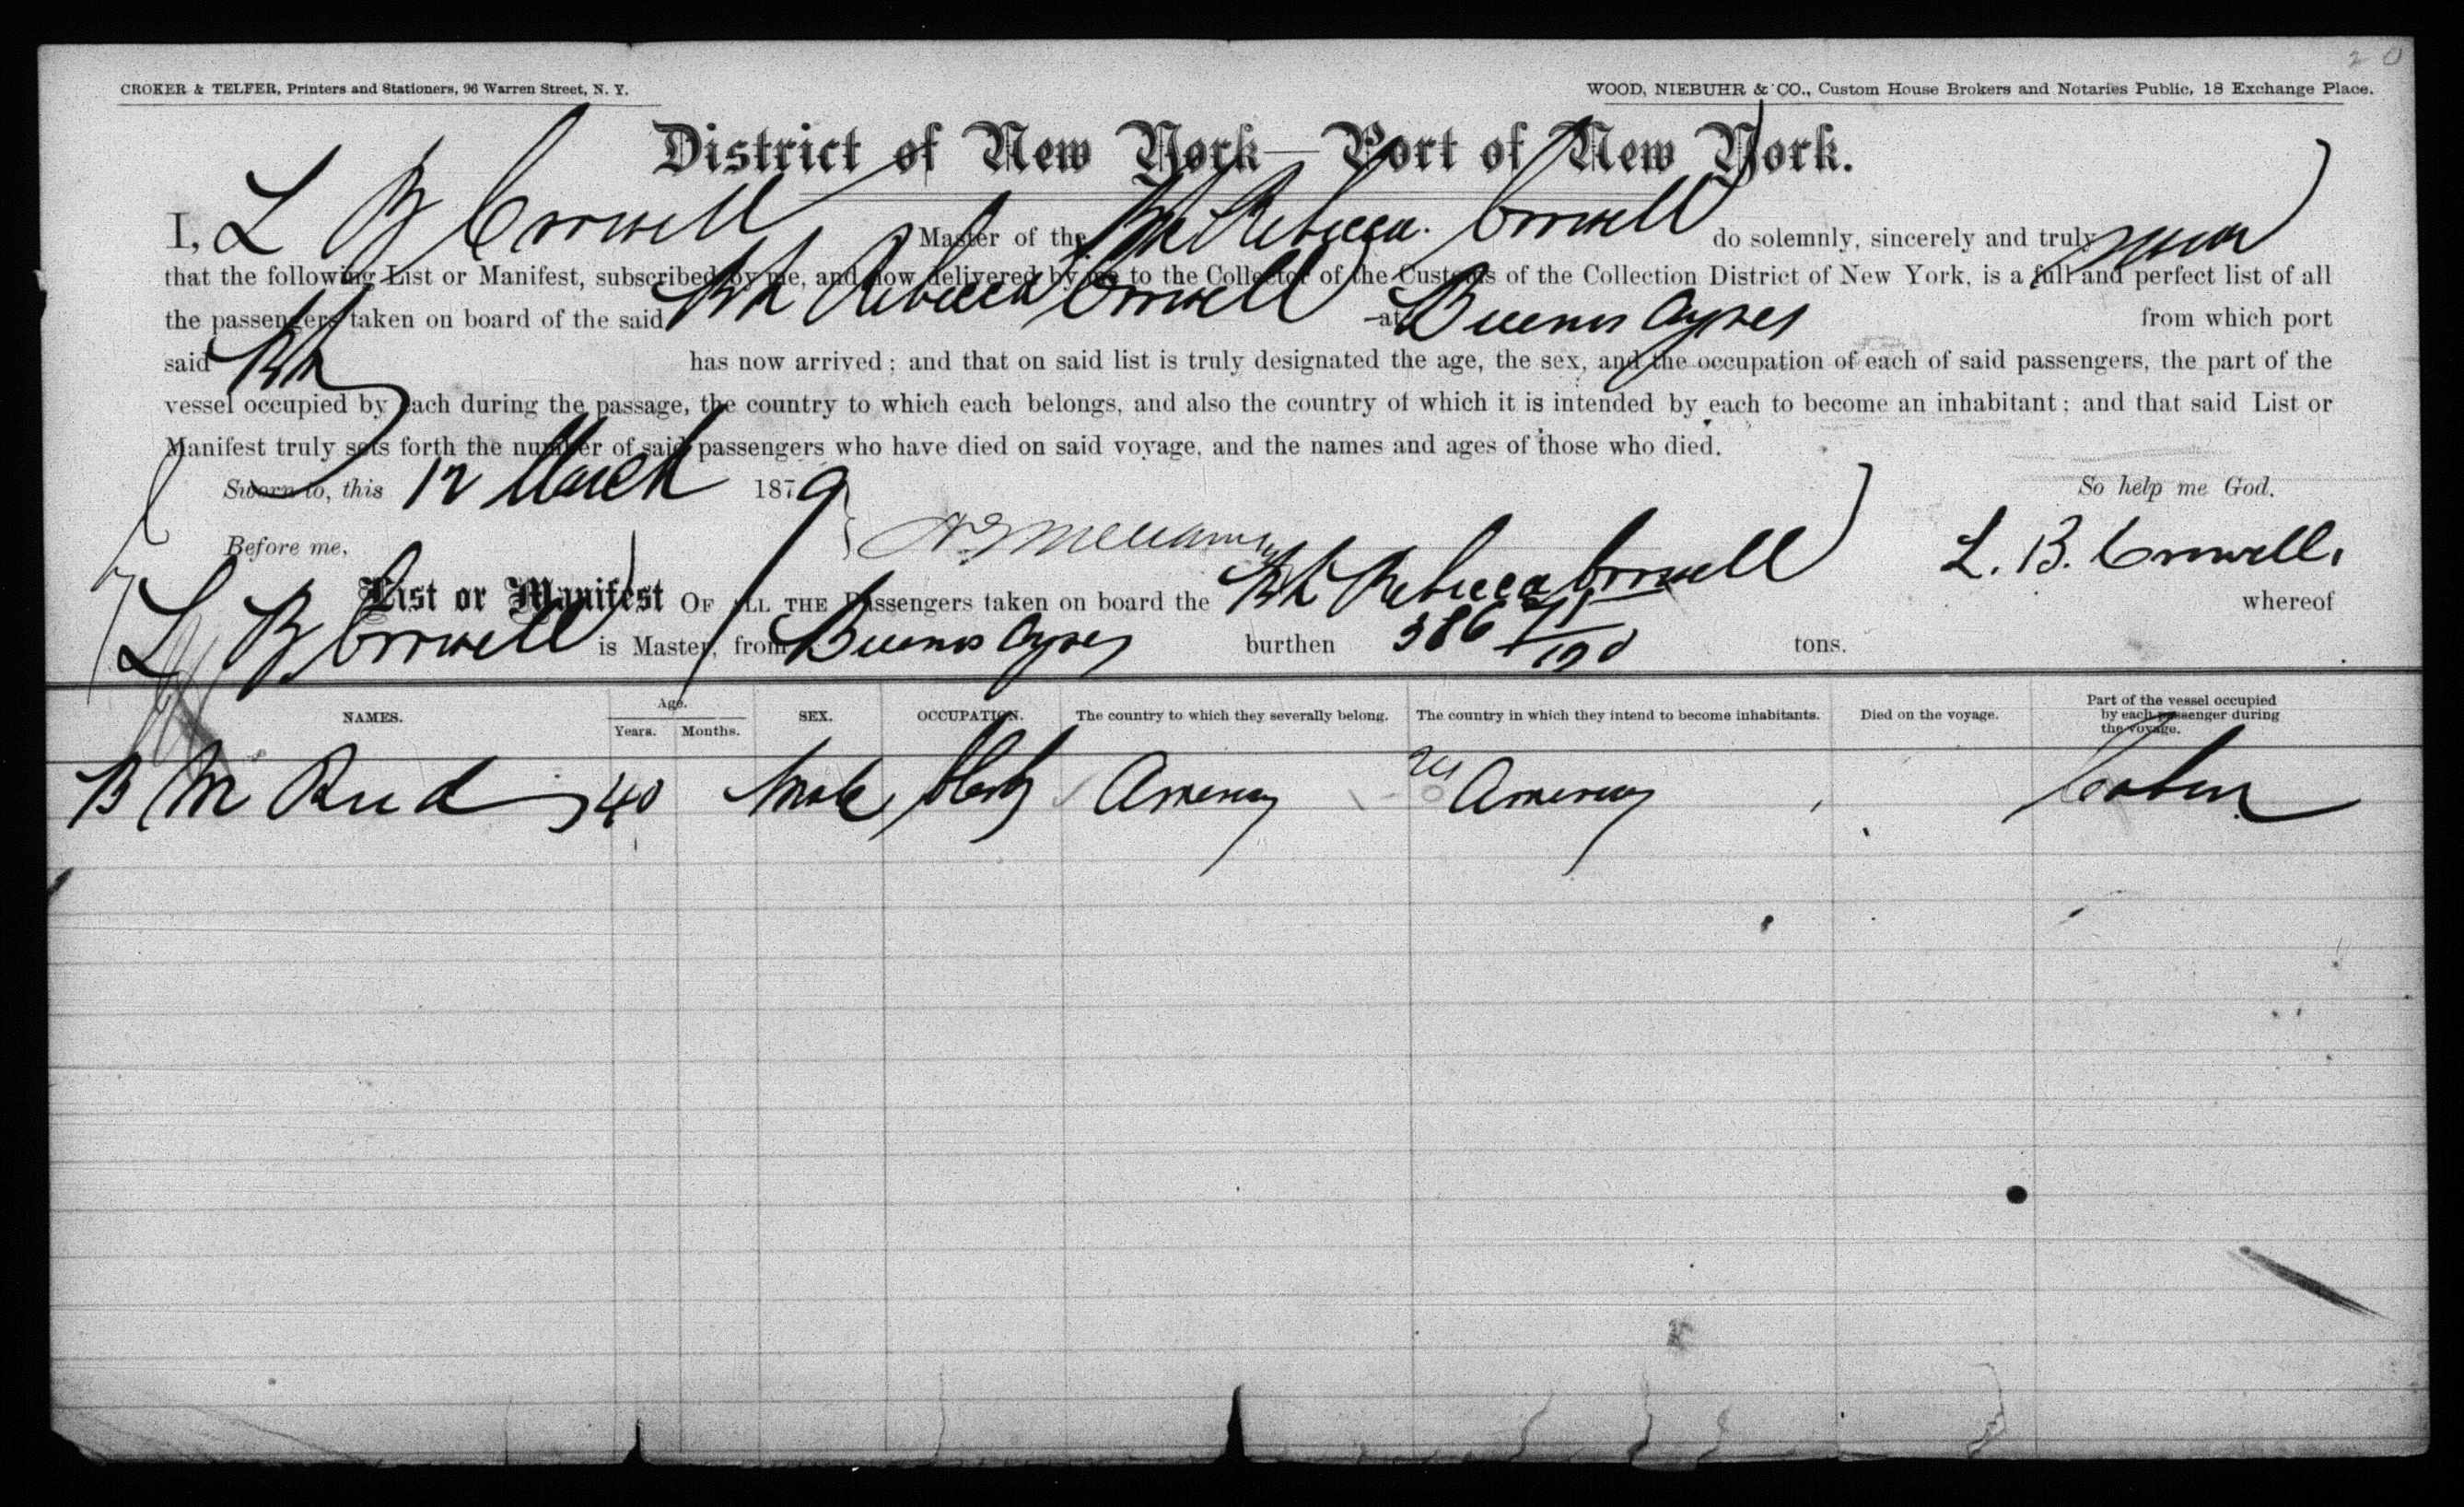 20
CROKER & TELFER, Printers and Stationers, 96 Warren Street, N. Y.
WOOD, NIEBUHR & CO., Custom House Brokers and Notaries Public, 18 Exchange Place.
District of New York—Port of New York.
I, L B Crowell Master of the Bk Rebecca Crowell do solemnly, sincerely and truly swear
that the following List or Manifest, subscribed by me, and now delivered by me to the Collector of the Customs of the Collection District of New York, is a full and perfect list of all
the passengers taken on board of the said Bk Rebecca Crowell at Buenos Ayres from which port
said Bk has now arrived; and that on said list is truly designated the age, the sex, and the occupation of each of said passengers, the part of the
vessel occupied by each during the passage, the country to which each belongs, and also the country of which it is intended by each to become an inhabitant; and that said List or
Manifest truly sets forth the number of said passengers who have died on said voyage, and the names and ages of those who died.
Sworn to, this 12 March 1879 So help me God.
Before me, L. B. Crowell.
List or Manifest OF ALL THE Passengers taken on board the Bk Rebecca Crowell whereof
L B Crowell is Master, from Buenos Ayres burthen 386 71/100 tons.
NAMES. Age. Years. Months. SEX. OCCUPATION. The country to which they severally belong. The country in which they intend to become inhabitants. Died on the voyage. Part of the vessel occupied by each passenger during the voyage.
B M Reed 40 Male America America Cabin